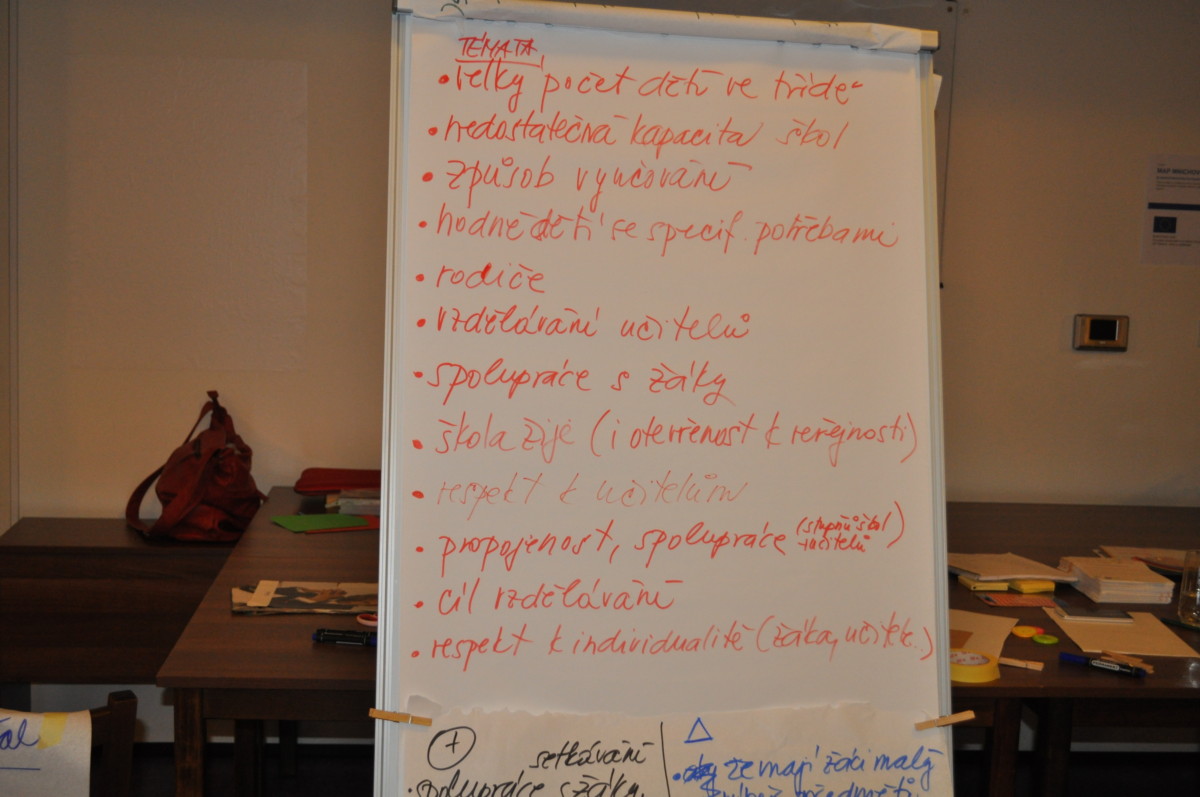 TÉMATA
• velký počet dětí ve třídě
• nedostatečná kapacita škol
• způsob vyučování
• hodně dětí se specif. potřebami
• rodiče
• vzdělávání učitelů
• spolupráce s žáky
• škola žije (i otevřenost k veřejnosti)
• respekt k učitelům
• propojenost, spolupráce (stupňů škol
+učitelů)
• cíl vzdělávání
• respekt k individualitě (žáka, učitele..)
+
setkávání
• spolupráce s žáky
• že mají žáci malý
předmětů